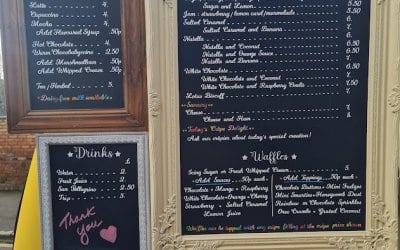 Latte 4.
Cappuccino 4.
Mocha 4.
Add Flavoured Syrup .50p
Hot Chocolate 4.
Warm Chocolaccino 2.50
Add Marshmallows .50p
Add Whipped Cream .50p
Tea / Herbal 3.
Dairy free milk available
★ Drinks ★
£
Water 2.
Fruit Juice 2.
San Pellegrino 2.50
Trip 3.
Thank you
Sugar and Lemon
Jam : strawberry / lemon curd / marmalade
Salted Caramel
Salted Caramel and Banana
Nutella
Nutella and Coconut
Nutella and Orange Sauce
Nutella and Banana
White Chocolate
White Chocolate and Coconut
White Chocolate and Raspberry
Lotus Biscoff
Savoury
Cheese
Cheese and Ham
Today's Crepe Delight
Ask our crepier about today's special creation!
★ Waffles ★
Icing Sugar or Fresh Whipped Cream 5.
- Add Sauces - .50p each - - Add Toppings .50p each -
Chocolate - Mango - Raspberry Chocolate Buttons - Mini Fudges
White Chocolate - Orange - Cherry Mini Smarties - Honeycomb Dust
Strawberry - Salted Caramel Rainbow or Chocolate Sprinkles
Lemon Juice Oreo Crumble - Grated Coconut
Waffles can be topped with any crepe filling at the crepe prices shown